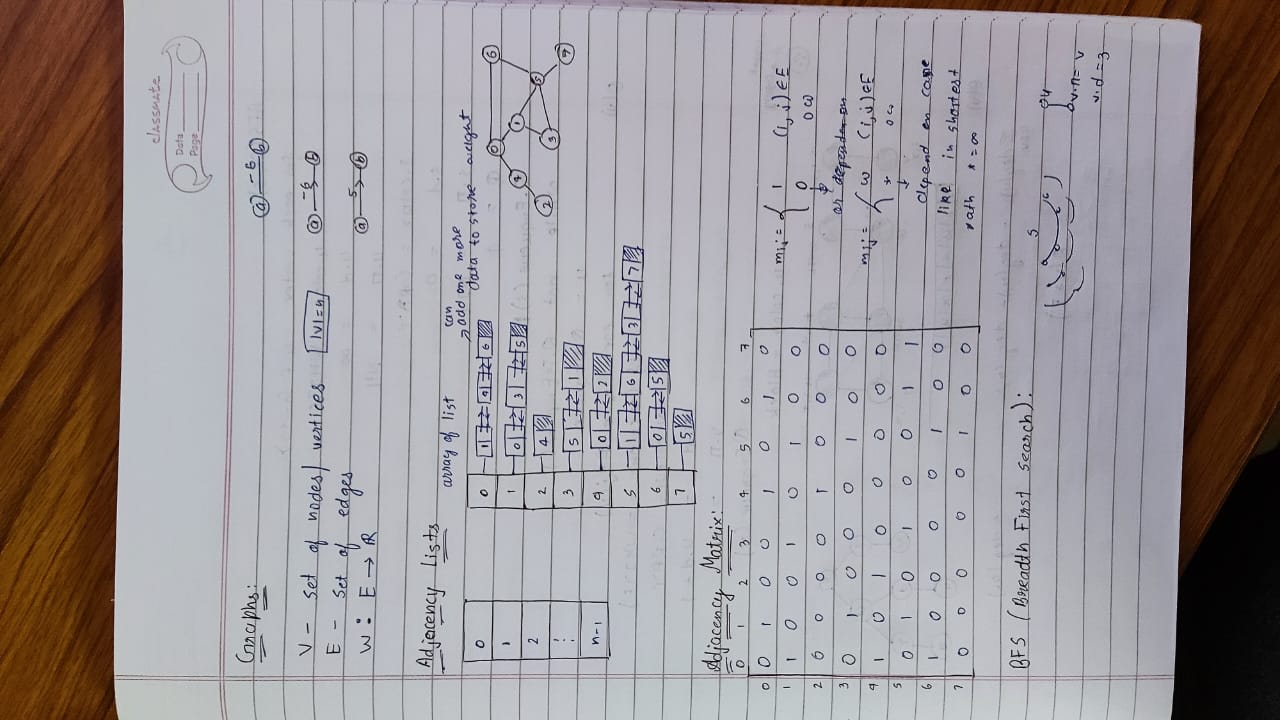 classmate
Date
Page
Graphs:
a -5 b
V - Set of nodes/vertices |V|=n
a -5 b
E - Set of edges
a 5 b
W: E → R
Adjacency Lists
array of list
can add one more
data to store weight
0
1
2
⋮
n-1
0 1 4 6
1 0 3 5
2 4
3 5 1
4 0 2
5 1 6 3 7
6 0 5
7 5
6 0 1 5 7 4 3 2
Adjacency Matrix:
0 1 2 3 4 5 6 7
0 0 1 0 0 1 0 1 0
1 1 0 0 1 0 1 0 0
2 0 0 0 0 1 0 0 0
3 0 1 0 0 0 1 0 0
4 1 0 1 0 0 0 0 0
5 0 1 0 1 0 0 1 1
6 1 0 0 0 0 1 0 0
7 0 0 0 0 0 1 0 0
mij = { 1 (i,j) ∈ E
0 ow
or depende on
mij = { w (i,j) ∈ E
* ow
depend on case
like in shortest
path * = ∞
BFS (Breadth First Search):
5
u
v.π = v
v.d = 3